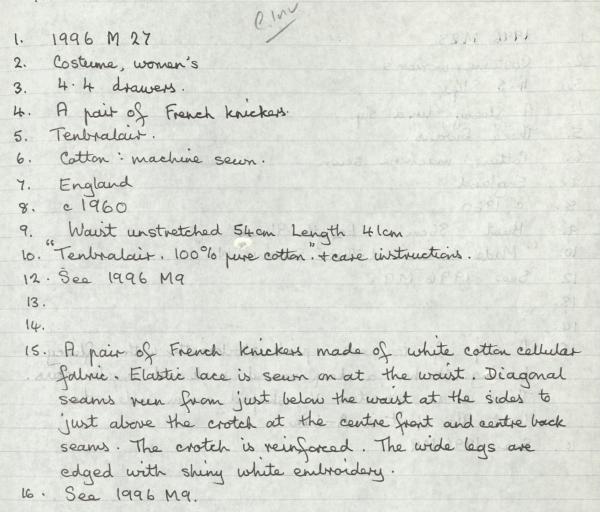 1. 1996 M 27
2. Costume, women's
3. 4.4 drawers.
4. A pair of French knickers.
5. Tenbralair.
6. Cotton : machine sewn.
7. England
8. c 1960
9. Waist unstretched 54cm Length 41cm
10. "Tenbralair. 100% pure cotton." + care instructions.
12. See 1996 M9
13.
14.
15. A pair of French knickers made of white cotton cellular
fabric. Elastic lace is sewn on at the waist. Diagonal
seams run from just below the waist at the sides to
just above the crotch at the centre front and centre back
seams. The crotch is reinforced. The wide legs are
edged with shiny white embroidery.
16. See 1996 M9.